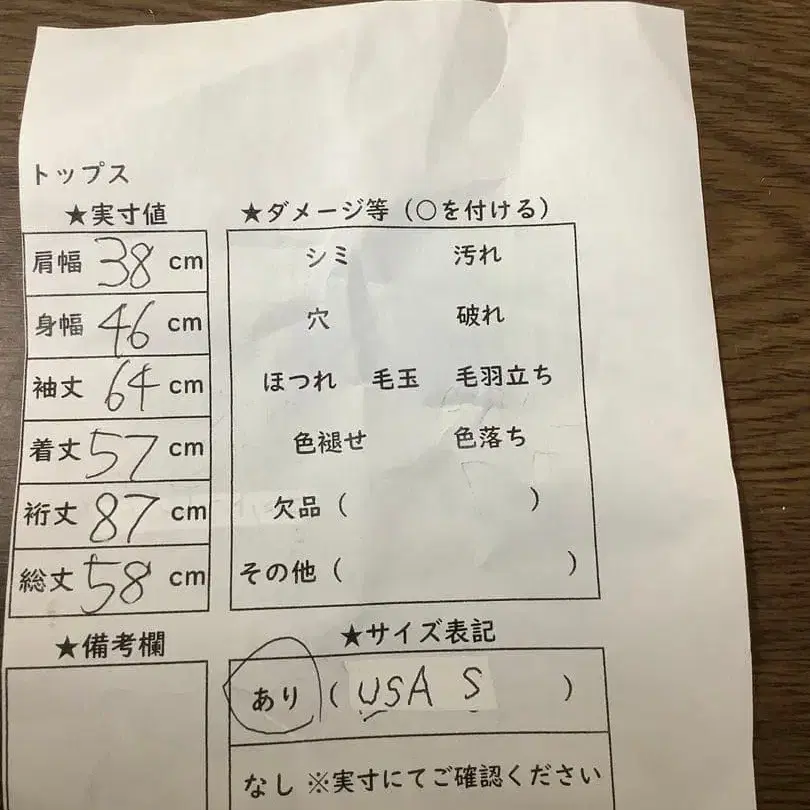 トップス
★実寸値
肩幅 38 cm
身幅 46 cm
袖丈 64 cm
着丈 57 cm
裄丈 87 cm
総丈 58 cm
★備考欄
★ダメージ等（○を付ける）
シミ 汚れ
穴 破れ
ほつれ 毛玉 毛羽立ち
色褪せ 色落ち
欠品（ ）
その他（ ）
★サイズ表記
あり（ USA S ）
なし ※実寸にてご確認ください